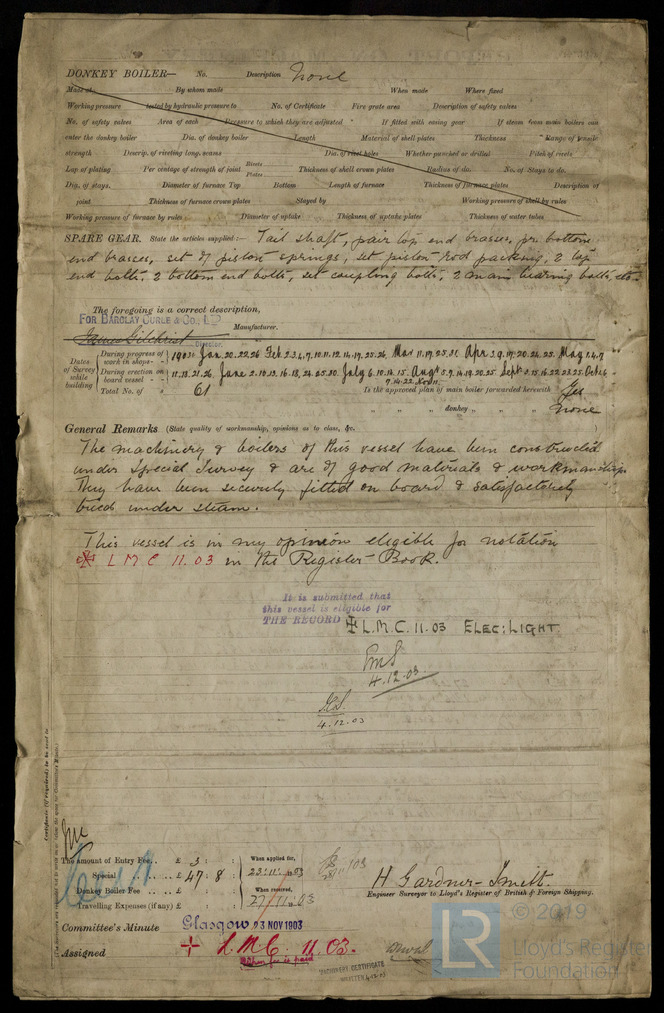 DONKEY BOILER— No. Description None
Made at By whom made When made Where fixed
Working pressure tested by hydraulic pressure to No. of Certificate Fire grate area Description of safety valves
No. of safety valves Area of each Pressure to which they are adjusted If fitted with easing gear If steam from main boilers can
enter the donkey boiler Dia. of donkey boiler Length Material of shell plates Thickness Range of tensile
strength Descrip. of riveting long. seams Dia. of rivet holes Whether punched or drilled Pitch of rivets
Lap of plating Per centage of strength of joint Rivets Plates Thickness of shell crown plates Radius of do. No. of Stays to do.
Dia. of stays. Diameter of furnace Top Bottom Length of furnace Thickness of furnace plates Description of
joint Thickness of furnace crown plates Stayed by Working pressure of shell by rules
Working pressure of furnace by rules Diameter of uptake Thickness of uptake plates Thickness of water tubes
SPARE GEAR. State the articles supplied:— Tail shaft, pair top end brasses, pr bottom
end brasses, set of piston springs, set piston rod packing, 2 top
end bolts, 2 bottom end bolts, set coupling bolts, 2 main bearing bolts, etc.
The foregoing is a correct description,
FOR BARCLAY CURLE & CO., LD
James Gilchrist Manufacturer.
Director.
Dates of Survey while building
During progress of work in shops-- 1903: Jan. 20. 22. 26 Feb. 2. 3. 4. 7. 10. 11. 12. 14. 19. 25. 26. Mar 11. 17. 25. 31. Apr. 3. 9. 17. 20. 24. 25. May 1. 4. 7
During erection on board vessel -- 11. 13. 21. 26. June 2. 10. 13. 16. 18. 24. 25. 30. July 6. 10. 14. 15. Augt 5. 7. 14. 19. 20. 25 Sept 3. 15. 16. 22. 23. 25. Oct 6.
7. 14. 22. Nov 11.
Total No. of 61 Is the approved plan of main boiler forwarded herewith Yes
" " " donkey " " " none
General Remarks (State quality of workmanship, opinions as to class, &c.
The machinery & boilers of this vessel have been constructed
under Special Survey & are of good materials & workmanship
They have been securely fitted on board & satisfactorily
tried under steam.
This vessel is in my opinion eligible for notation
✠ L M C 11. 03 in the Register Book.
It is submitted that
this vessel is eligible for
THE RECORD ✠ L.M.C. 11.03 ELEC: LIGHT.
4.12.03
4.12.03
Certificate (if required) to be sent to
The amount of Entry Fee.. £ 3 : :
Special .. £ 47 : 8 :
Donkey Boiler Fee .. .. £ : :
Travelling Expenses (if any) £ : :
When applied for,
23. 11. 03
When received,
27/11/03
H. Gardner-Smith.
Engineer Surveyor to Lloyd's Register of British & Foreign Shipping.
Committee's Minute Glasgow 23 NOV 1903
Assigned + L.M.C. 11.03.
When fee is paid
MACHINERY CERTIFICATE
WRITTEN
LR
© 2019
Lloyd's Register
Foundation